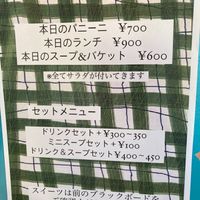 本日のパニーニ ¥700
本日のランチ ¥900
本日のスープ&バケット ¥600
※全てサラダが付いてきます
セットメニュー
ドリンクセット+¥300~350
ミニスープセット+¥100
ドリンク&スープセット¥400~450
スイーツは前のブラックボードを